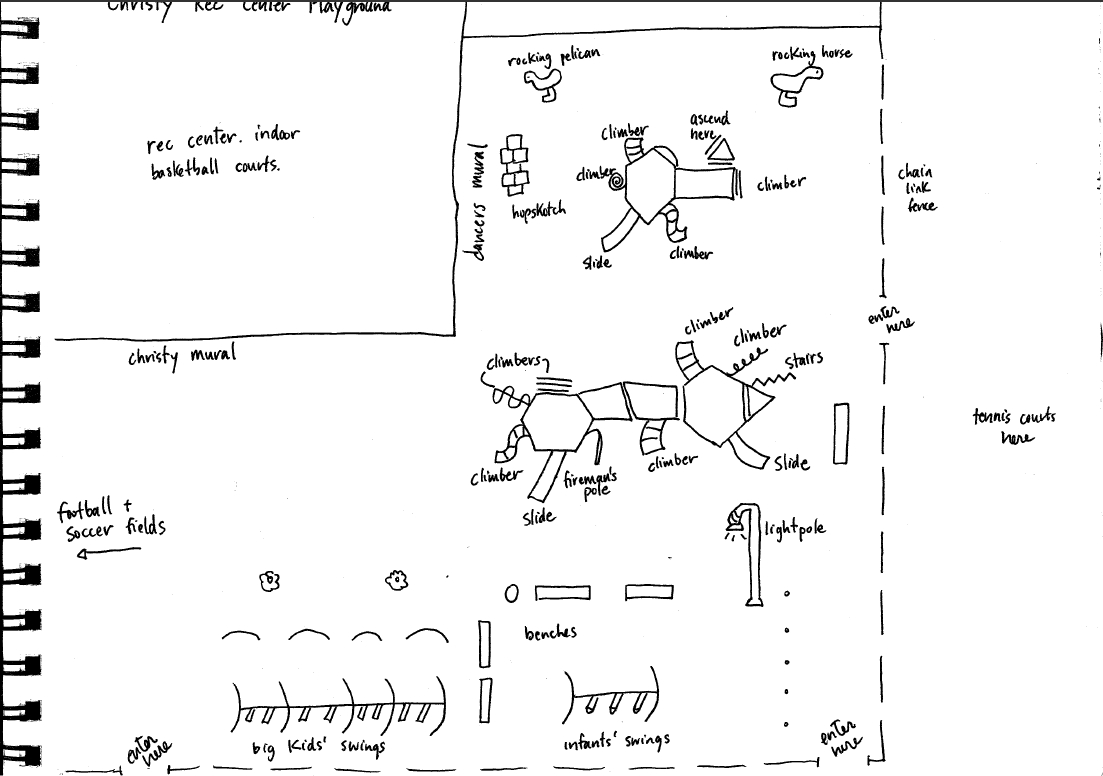 Christy Rec Center Playground
rocking pelican
rocking horse
rec center. indoor
basketball courts.
dancers mural
hopskotch
climber
climber
ascend
here
climber
slide
climber
chain
link
fence
enter
here
christy mural
climbers
climber
climber
stairs
climber
slide
fireman's
pole
climber
slide
tennis courts
here
football +
soccer fields
lightpole
benches
big kids' swings
infants' swings
enter
here
enter
here